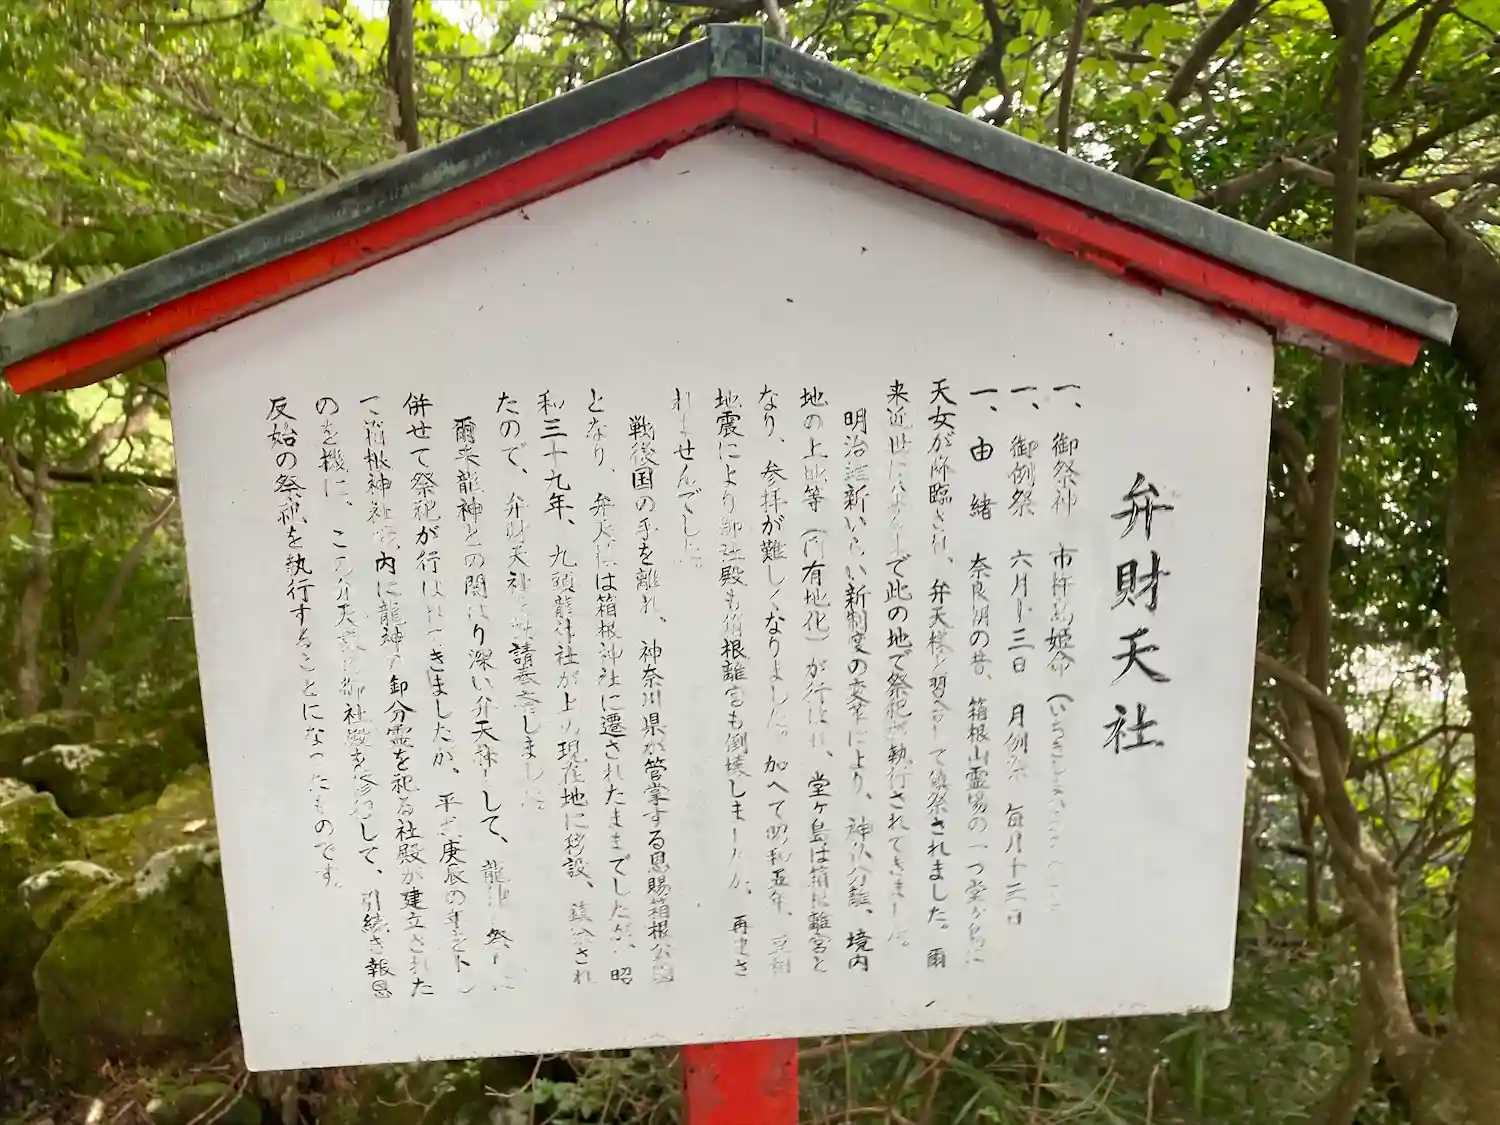 弁財天社
一、御祭神 市杵島姫命(いちきしま
一、御例祭 六月十三日 月例祭 毎月十三日
一、由緒 奈良朝の昔、箱根山霊場の一つ堂ヶ島に
天女が降臨され、弁天様と習合して鎮祭されました。爾
来近世に で此の地で祭祀が執行されてきました。
明治維新いらい新制度の変革により、神仏分離、境内
地の上地等(国有地化)が行はれ、堂ヶ島は箱根離宮と
なり、参拝が難しくなりました。加へて昭和五年、豆相
地震により御社殿も箱根離宮も倒壊しましたが、再建さ
れませんでした。
戦後国の手を離れ、神奈川県が管掌する恩賜箱根公園
となり、弁天様は箱根神社に遷されたままでしたが、昭
和三十九年、九頭龍神社が上の現在地に移設、鎮祭され
たので、弁財天神も 請奉斎しました。
爾来龍神との関はり深い弁天様として、龍神の祭りに
併せて祭祀が行はれてきましたが、平成庚辰の年を卜し
て箱根神社境内に龍神の御分霊を祀る社殿が建立された
のを機に、この弁天 御社殿を修復して、引続き報恩
反始の祭祀を執行することになったものです。